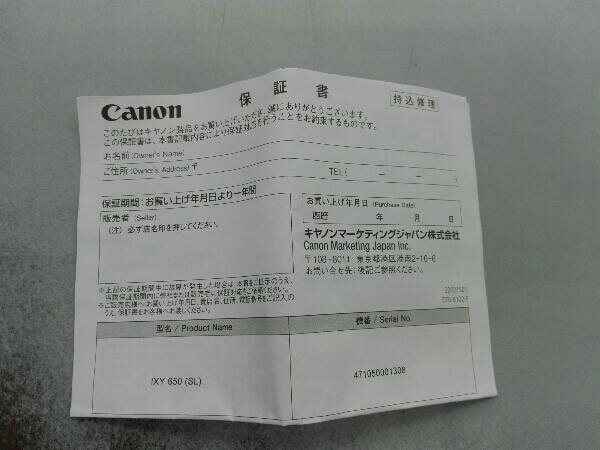 Canon
保証書
持込修理
このたびはキヤノン製品をお買い上げいただき、誠にありがとうございます。
この保証書は、本書記載内容により保証対応を行うことをお約束するものです。
お名前 (Owner's Name)
ご住所 (Owner's Address) 〒
TEL( － － )
保証期間：お買い上げ年月日より一年間
販売者 (Seller)
(注) 必ず店名印を押してください。
お買い上げ年月日 (Purchase Date)
西暦 年 月 日
キヤノンマーケティングジャパン株式会社
Canon Marketing Japan Inc.
〒108-8011 東京都港区港南2-16-6
お問い合せ先：後記ご参照ください。
※上記の保証期間中に故障が発生した場合は、本書をご提示のうえ、
当該保証期間内に弊社または販売者に保証対応をご依頼ください。
※ご販売店様へお買い上げ年月日、貴店名、住所、電話番号をご記入の
うえ、保証書をお客様へお渡しください。
型名 / Product Name
機番 / Serial No.
IXY 650 (SL)
471050001308